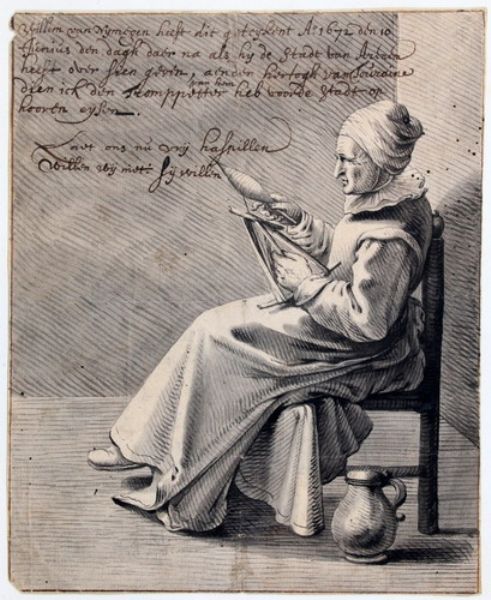 Willem van Nymegen heeft dit geteykent Aº 1672 den 10
Junius den dagh daer na als hy de Stadt van
heeft over sien geven, aenden hertogh van Touraine
dien ick den Tromppetter van hem heb voorde Stadt op
hooren eysen.
Laet ons nu vrij haspillen
Willen wij niet sij willen